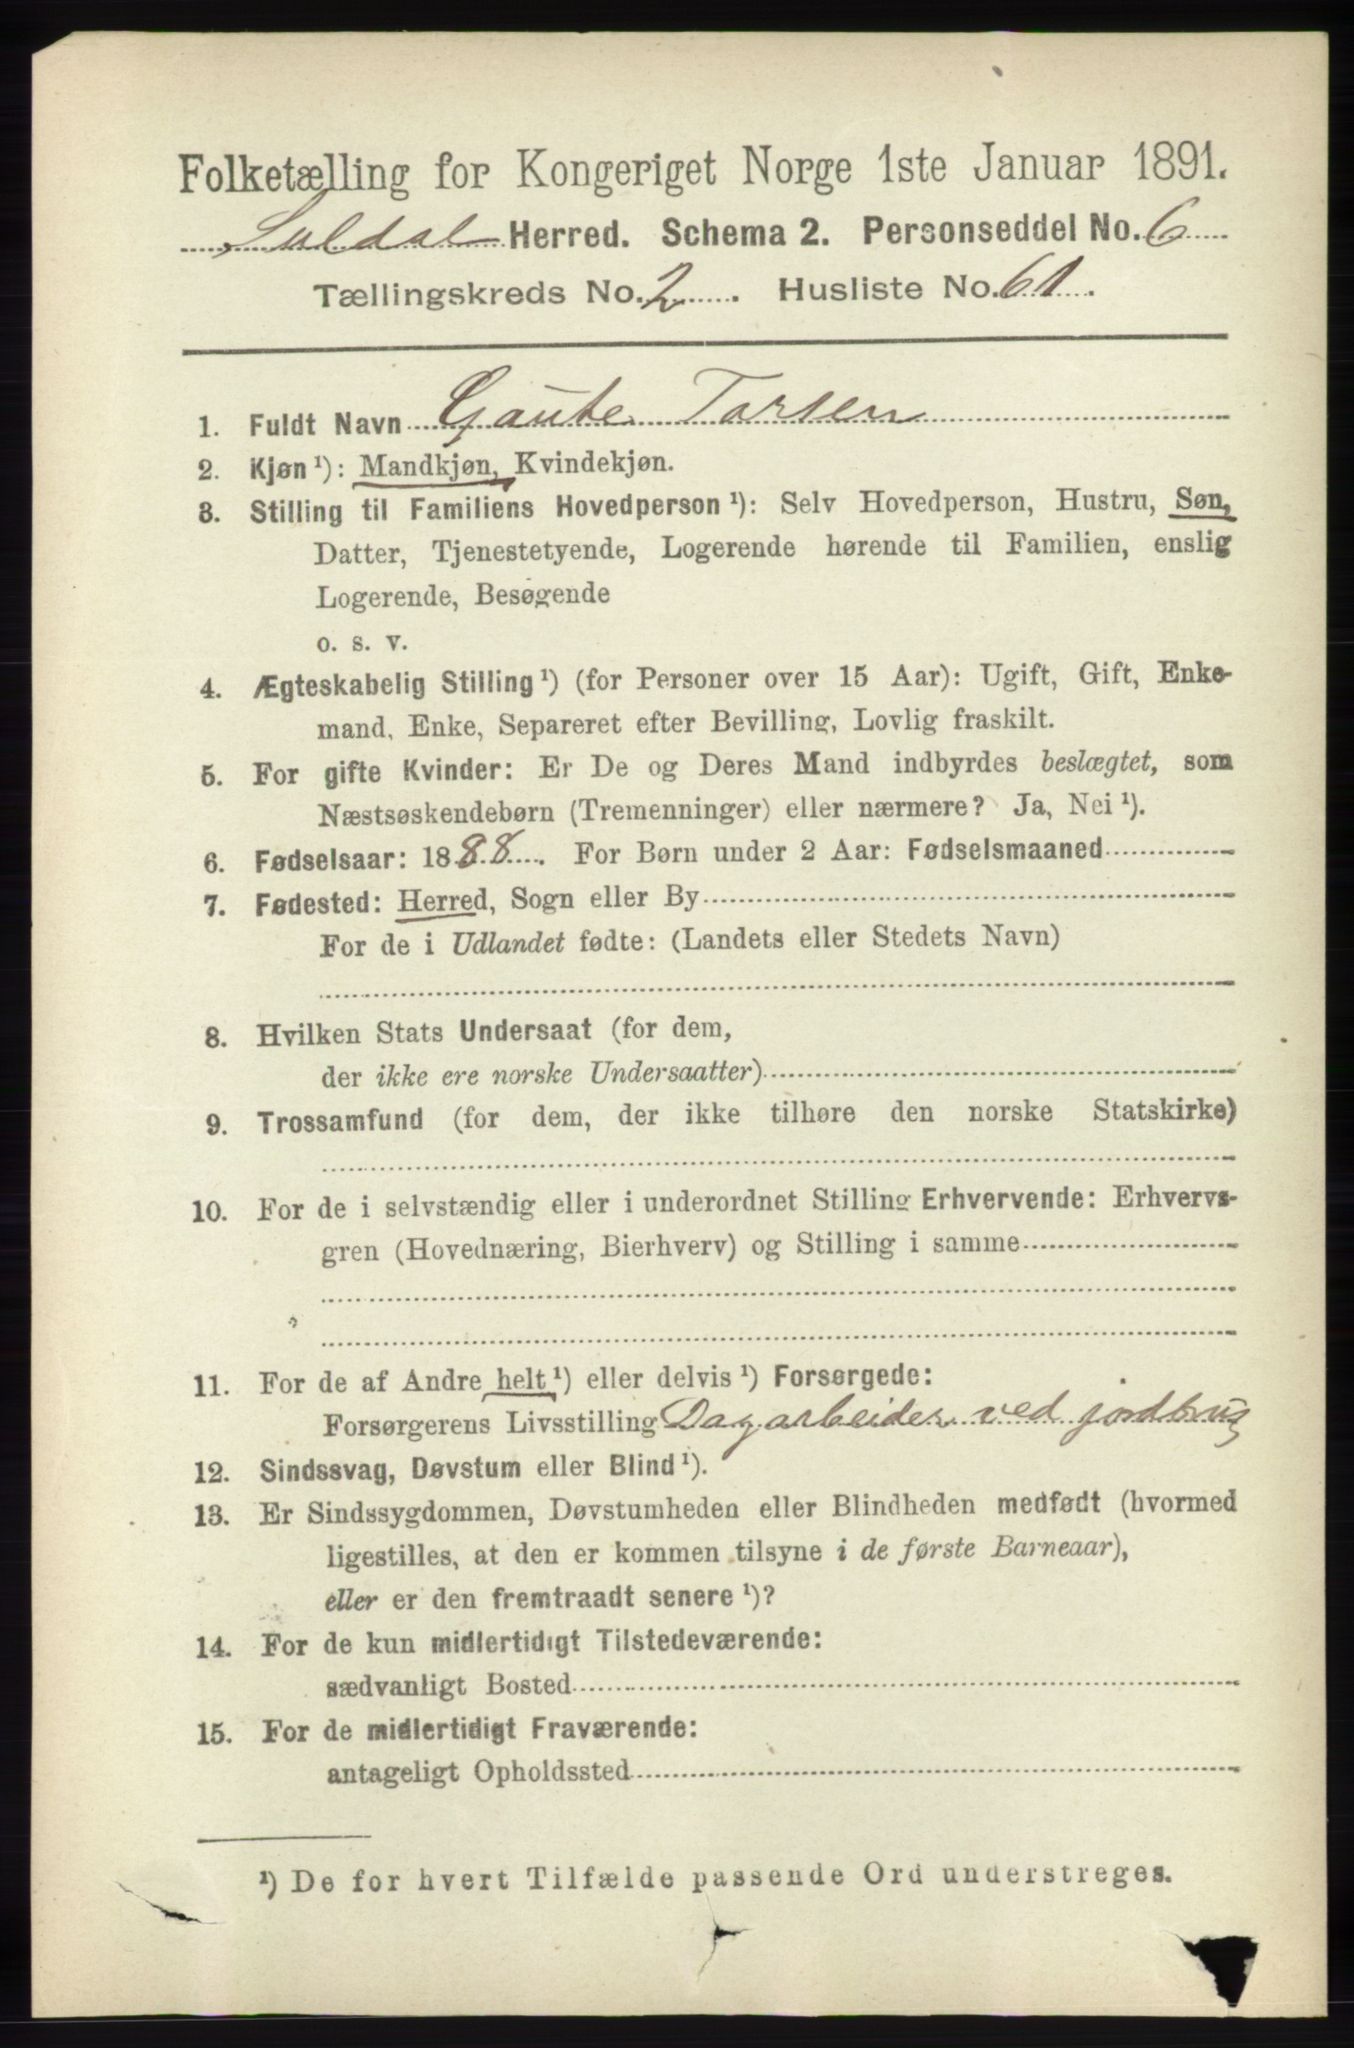 Folketælling for Kongeriget Norge 1ste Januar 1891.
Suldal Herred. Schema 2. Personseddel No. 6
Tællingskreds No. 2. Husliste No. 61.
1. Fuldt Navn Gaute Tarsen
2. Kjøn ¹): Mandkjøn, Kvindekjøn.
3. Stilling til Familiens Hovedperson ¹): Selv Hovedperson, Hustru, Søn,
Datter, Tjenestetyende, Logerende hørende til Familien, enslig
Logerende, Besøgende
o. s. v.
4. Ægteskabelig Stilling ¹) (for Personer over 15 Aar): Ugift, Gift, Enke-
mand, Enke, Separeret efter Bevilling, Lovlig fraskilt.
5. For gifte Kvinder: Er De og Deres Mand indbyrdes beslægtet, som
Næstsøskendebørn (Tremenninger) eller nærmere? Ja, Nei ¹).
6. Fødselsaar: 1888. For Børn under 2 Aar: Fødselsmaaned
7. Fødested: Herred, Sogn eller By
For de i Udlandet fødte: (Landets eller Stedets Navn)
8. Hvilken Stats Undersaat (for dem,
der ikke ere norske Undersaatter)
9. Trossamfund (for dem, der ikke tilhøre den norske Statskirke)
10. For de i selvstændig eller i underordnet Stilling Erhvervende: Erhvervs-
gren (Hovednæring, Bierhverv) og Stilling i samme
11. For de af Andre helt ¹) eller delvis ¹) Forsørgede:
Forsørgerens Livsstilling Dagarbeider ved jordbrug
12. Sindssvag, Døvstum eller Blind ¹).
13. Er Sindssygdommen, Døvstumheden eller Blindheden medfødt (hvormed
ligestilles, at den er kommen tilsyne i de første Barneaar),
eller er den fremtraadt senere ¹)?
14. For de kun midlertidigt Tilstedeværende:
sædvanligt Bosted
15. For de midlertidigt Fraværende:
antageligt Opholdssted
¹) De for hvert Tilfælde passende Ord understreges.